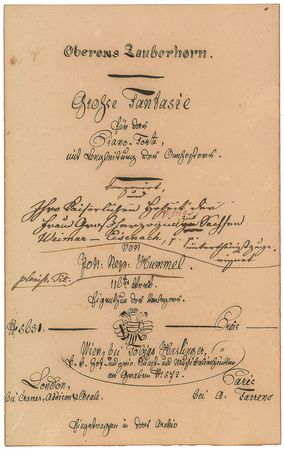 Oberons Zauberhorn.
Große Fantasie
für das
Piano-Forte
mit Begleitung des Orchesters.
componirt
und
Ihro Kaiserlichen Hoheit der
Frau Großherzogin zu Sachsen
Weimar-Eisenach,
unterthänigst zuge-
eignet
von
Joh: Nep: Hummel.
116tes Werk
Eigenthum des Verlegers.
№ 5651.
Wien, bei Tobias Haslinger,
k. k. Hof- und priv. Kunst- und Musikalienhändler
am Graben № 572.
London,
bei Cramer, Addison & Beale.
Paris
bei A. Farrenc
Eingetragen in das Archiv